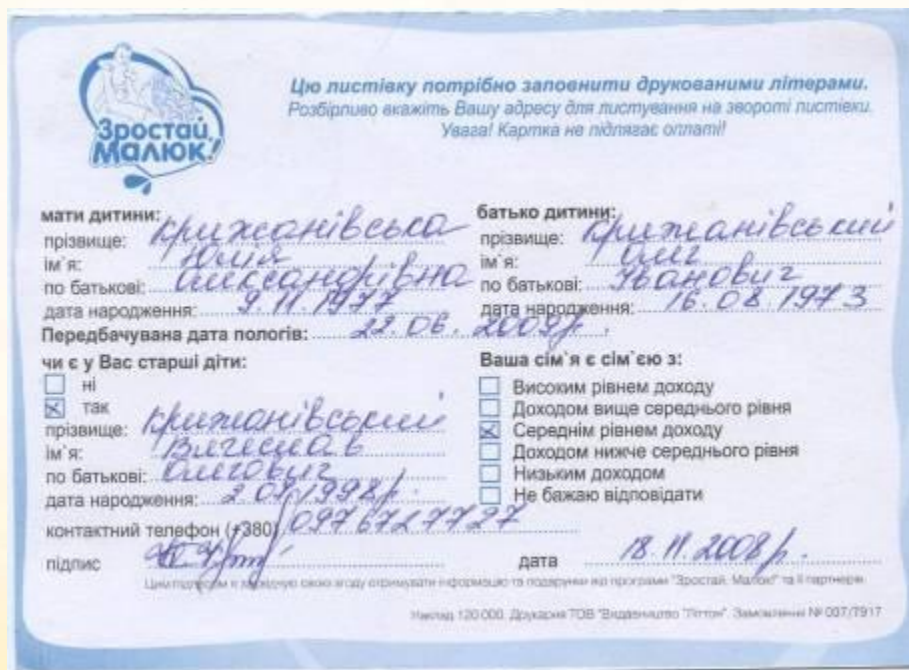 Зростай, Малюк!
Цю листівку потрібно заповнити друкованими літерами.
Розбірливо вкажіть Вашу адресу для листування на звороті листівки.
Увага! Картка не підлягає оплаті!
мати дитини:
прізвище: Крижанівська
ім`я: Юлія
по батькові: Олександрівна
дата народження: 9.11.1977
батько дитини:
прізвище: Крижанівський
ім`я: Олег
по батькові: Іванович
дата народження: 16.08 1973
Передбачувана дата пологів: 22.06. 2009р.
чи є у Вас старші діти:
ні
так
прізвище: Крижанівський
ім`я: Вячеслав
по батькові: Олегович
дата народження: 1998р.
Ваша сім`я є сім`єю з:
Високим рівнем доходу
Доходом вище середнього рівня
Середнім рівнем доходу
Доходом нижче середнього рівня
Низьким доходом
Не бажаю відповідати
контактний телефон (+380) 0976727727
підпис
дата 18.11.2008р.
Цим підписом я засвідчую свою згоду отримувати інформацію та подарунки від програми "Зростай, Малюк!" та її партнерів.
Наклад 120 000. Друкарня ТОВ "Видавництво "Літтон". Замовлення № 007/7917